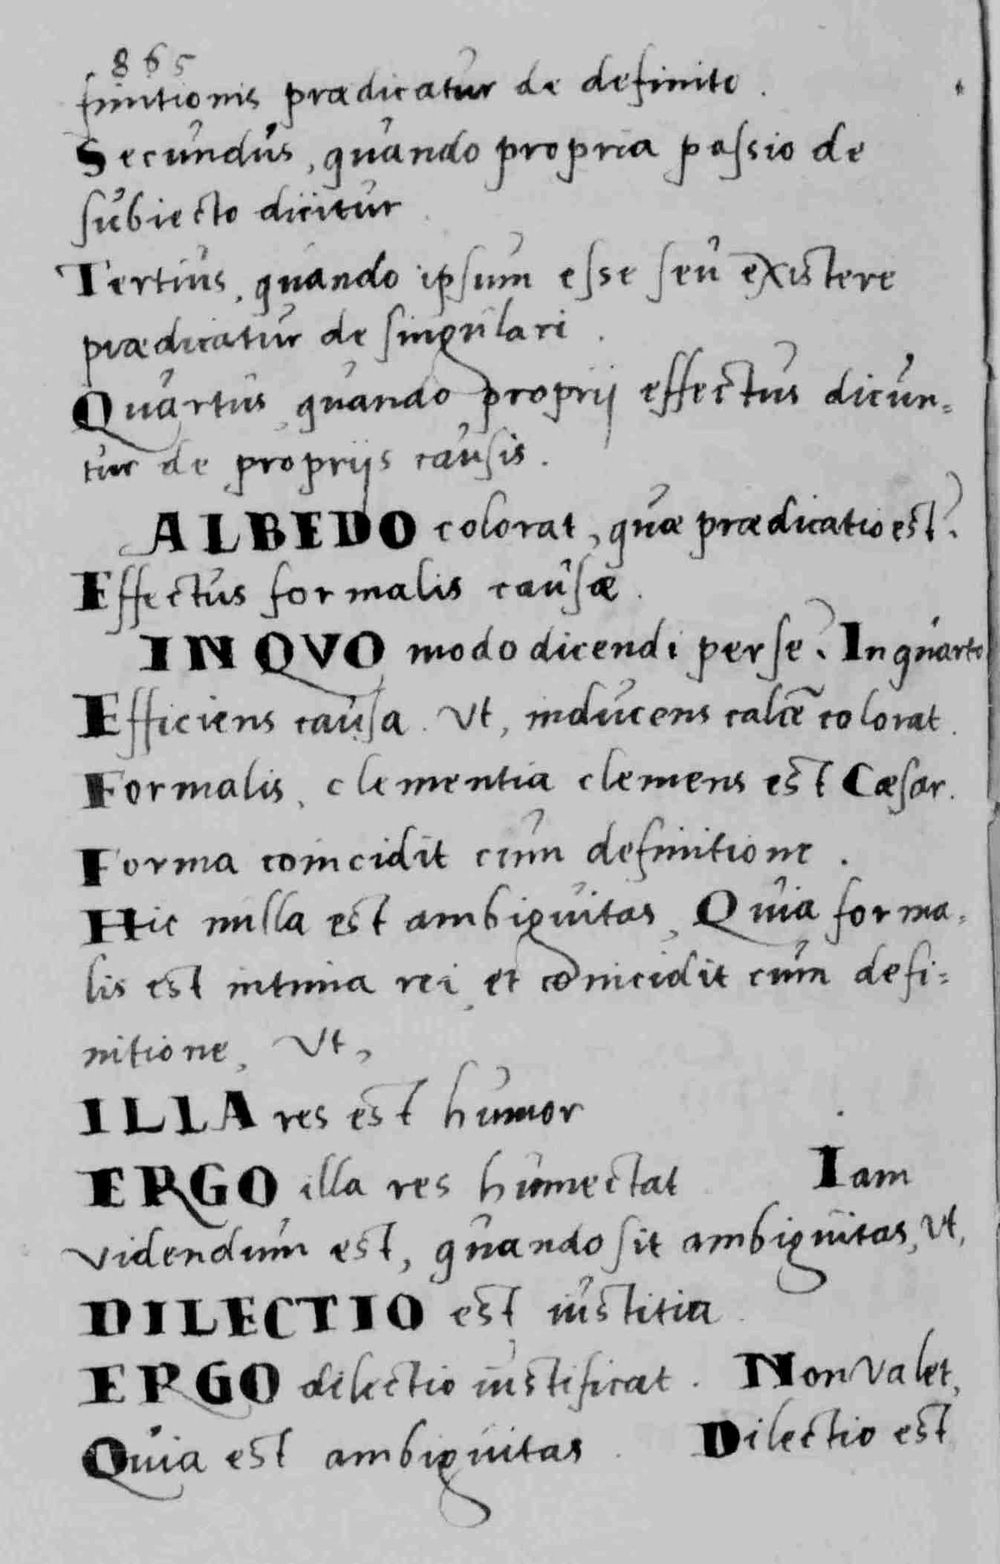 865
finitionis prædicatur de definito.
Secundus, quando propria passio de
subiecto dicitur
Tertius, quando ipsum esse seu existere
prædicatur de singulari.
Quartus, quando proprij effectus dicun=
tur de proprijs causis.
ALBEDO colorat, quæ prædicatio est?
Effectus formalis causæ.
IN QVO modo dicendi per se? In quarto
Efficiens causa. Vt, inducens calcē colorat.
Formalis, clementia clemens est Cæsar.
Forma coincidit cum definitione.
Hic nulla est ambiguitas, Quia forma=
lis est intima rei, et coincidit cum defi=
nitione, Vt,
ILLA res est humor
ERGO illa res humectat Iam
videndum est, quando sit ambiguitas, Vt,
DILECTIO est iustitia.
ERGO dilectio iustificat. Non valet,
Quia est ambiguitas. Dilectio est